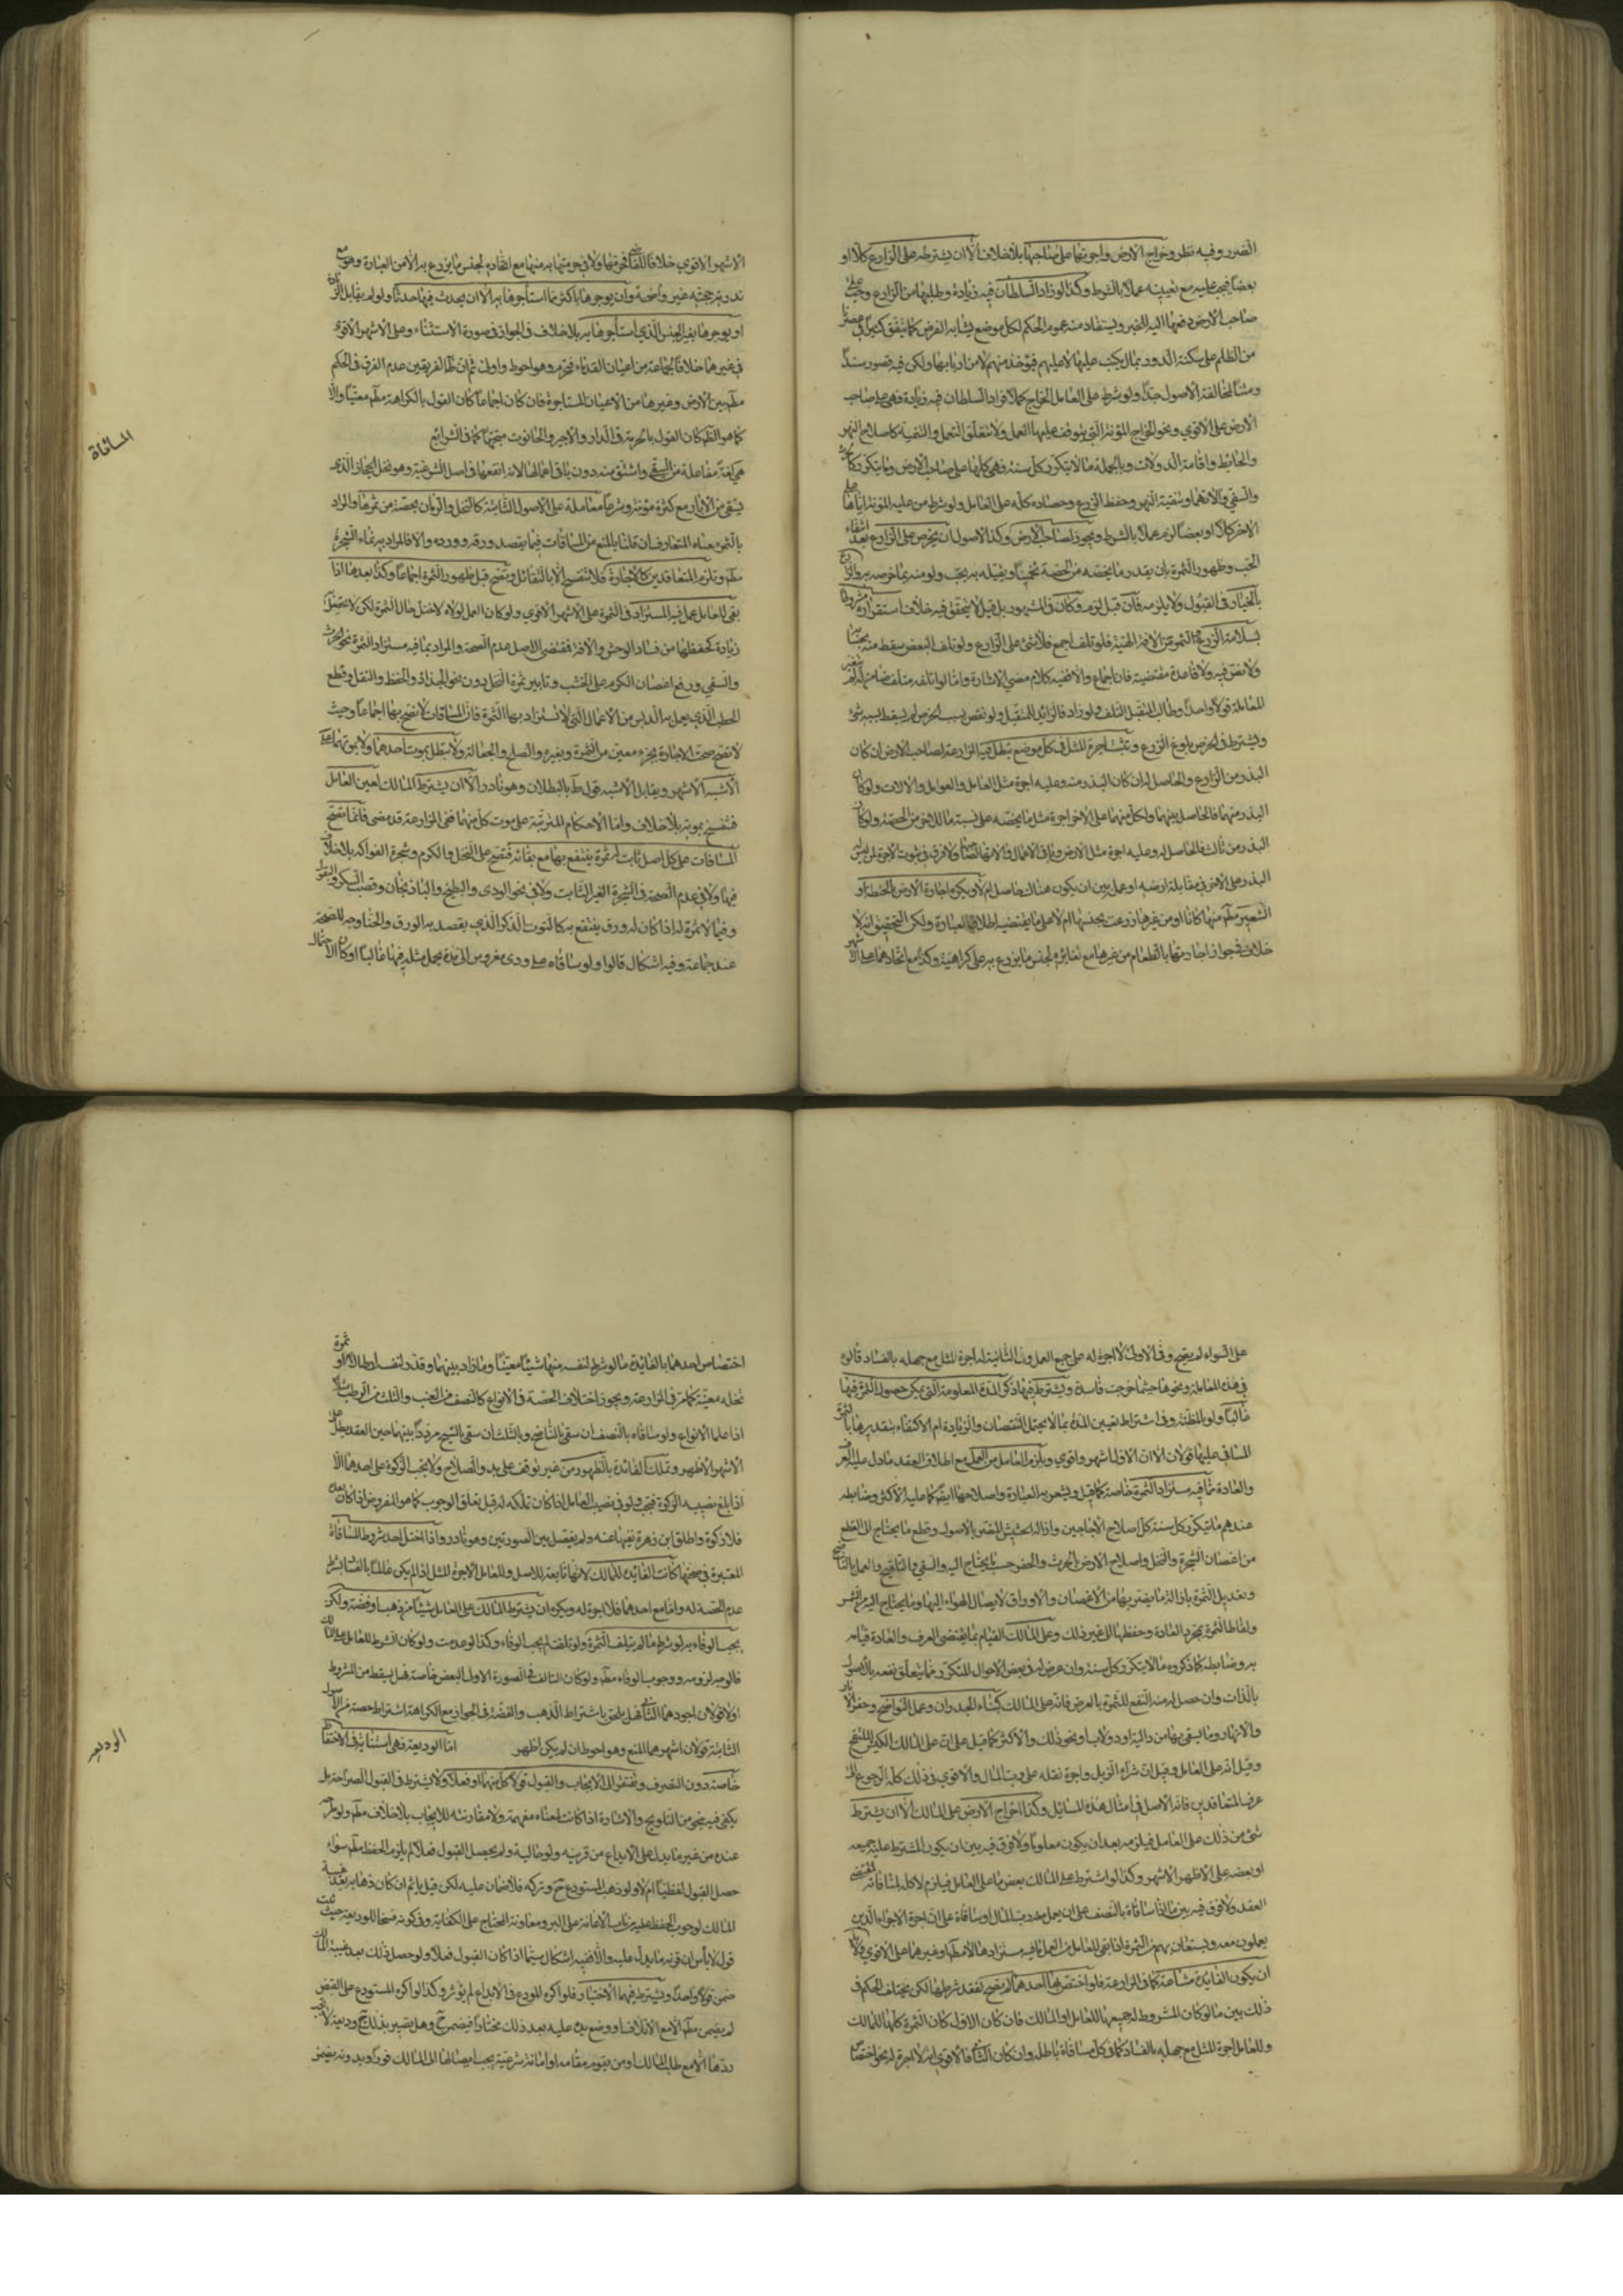 الضرر وفيه نظر وخراج الارض واجرتها على صاحبها بلا خلاف الا ان يشترطه على الزارع كلا او
بعضا فيجب عليه مع تعيينه عملا بالشرط وكذا لو زاد السلطان فيه زيادة وطلبها من الزارع وجب على
صاحب الارض دفعها اليه للخبر ويستفاد منه عموم الحكم لكل موضع يشابه الفرض كما يتفق كثيرا في عصرنا
من الظلم على سكنة الدور بمال يكتب عليها لا عليهم فيؤخذ منهم لا من اربابها ولكن فيه قصور سندا
ومشا لمخالفة الاصول جدا ولو شرط على العامل الخراج كملا فزاد السلطان فيه زيادة فهي على صاحب
الارض على الاقوى ونحو الخراج المؤنة التي يتوقف عليها العمل ولا تتعلق بالعمل والتنمية كاصلاح النهر
والحائط واقامة الدولاب وبالجملة ما لا يتكرر كل سنة فهي كلها على صاحب الارض وما يتكرر كالحرث
والسقي والاتهما وتنقية النهر وحفظ الزرع وحصاده كله على العامل ولو شرط من عليه المؤنة اياها على
الاخر كلا او بعضا لزم عملا بالشرط ويجوز لصاحب الارض وكذا الاصول ان يخرص على الزارع بعد انتهاء
الحب وظهور الثمرة بان يقدر ما يخصه من الحصة تخمينا ويقبله به بحب ولو منه بما خرصه به والزارع
بالخيار في القبول ولا يلزمه فان قبل لزمه وكان في المشهور بل قيل لا يتحقق فيه خلاف استقراره مشروطا
بسلامة الزرع والثمرة من الافة الهية فلو تلف اجمع فلا شئ على الزارع ولو تلف البعض سقط منه بحسابه
ولا نص فيه ولا قاعدة مقتضية فان اجماع والا ففيه كلام مضى الاشارة واما لو اتلفه متلف ضامن لم يتغير
المعاملة قولا واحدا وطالب المتقبل المتلف ولو زاد فالزائد للمتقبل ولو نقص بسبب الخرص لم يسقط بسببه شئ
ويشترط في الخرص بلوغ الزرع وتثبت اجرة المثل في كل موضع تبطل فيه المزارعة لصاحب الارض ان كان
البذر من الزارع والحاصل له ان كان البذر منه وعليه اجرة مثل العامل والعوامل والالات ولو كان
البذر منهما فالحاصل بينهما ولكل منهما على الاخر اجرة مثل ما يخصه على نسبة ما للاخر من الحصة ولو كان
البذر من ثالث فالحاصل له وعليه اجرة مثل الارض وباقي الاعمال والاتها ايضا ولا فرق في ثبوت الاجرة لمن ليس
البذر على الاخر في مقابلة ارضه او عمله بين ان يكون هناك حاصل ام لا ويكره اجارة الارض بالحنطة او
الشعير مطم منها كانا او من غيرها زرعت بجنسها ام لا على ما يقتضيه اطلاق العبارة ولكن التحقيق انه لا
خلاف في جواز اجارتها بالطعام من غيرها مع تغايره لجنس ما يزرع به على كراهية وكذا مع اتحادهما على الاشهر
الاشهر الاقوى خلافا للقاضي فمنعها ولا في حرمتها به منها مع اتحاده لجنس ما يزرع به الامن العبارة وهو مع
ندرته حجته غير واضحة وان يوجرها باكثر مما استأجرها به الا ان يحدث فيها حدثا ولو لم يقابل الزيادة
او يوجرها بغير الجنس الذي استأجرها به بلا خلاف في الجواز في صورة الاستثناء وعلى الاشهر الاقوى
في غيرهما خلافا لجماعة من اعيان القدماء فحرموه وهو احوط واولى ثم ان ظ الفريقين عدم الفرق في الحكم
مطم بين الارض وغيرها من الاعيان المستاجرة فان كان اجماعا كان القول بالكراهة مطم متعينا والا
كما هو الظ كان القول بالحرمة في الدار والاجير والحانوت متجها كما في الشرائع
المساقاة
هي لغة مفاعلة من السقي واشتق منه دون باقي اعمالها لانه انفعها في اصل الشرعية وهو نخل الحجاز الذي
يسقى من الابار مع كثرة مؤنته وشرعا معاملة على الاصول الثابتة كالنخل والرمان بحصة من ثمرها والمراد
بالثمر معناه المتعارف ان قلنا بالمنع من المساقات فيما يقصد ورقه وورده والا فالمراد به نماء الشجرة
مطم وتلزم المتعاقدين كالاجارة فلا تنفسخ الا بالتقائل وتصح قبل ظهور الثمرة اجماعا وكذا بعدها اذا
بقي للعامل عمل فيه المستزاد في الثمرة على الاشهر الاقوى ولو كان العمل لولاه لاختل حال الثمرة لكن لا يحصل به
زيادة كحفظها من فساد الوحش والافة فمقتضى الاصل عدم الصحة والمراد بما فيه مستزاد الثمرة نحو الحرث
والسقي ورفع اغصان الكرم على الخشب وتابير ثمرة النخل دون نحو الجذاذ والحفظ والنقل وقطع
الحطب الذي يعمل به الدبس من الاعمال التي لا تستزاد بها الثمرة فان المساقات لا تصح بها اجماعا وحيث
لا تصح صحت الاجارة بجزء معين من الثمرة وبغيره والصلح والجعالة ولا تبطل بموت احدهما ولا بموتهما على
الاشبه الاشهر ويقابل الاشبه قول ط بالبطلان وهو نادر الا ان يشترط المالك تعين العامل
فتنفسخ بموته بلا خلاف واما الاحكام المترتبة على موت كل منهما ففي المزارعة قد مضى فانما تصح
المساقات على كل اصل ثابت له ثمرة ينتفع بها مع بقائه فتصح على النخل والكرم وشجرة الفواكه بلا خلاف
فيها ولا في عدم الصحة في الشجرة الغير الثابت ولا في نحو الودي والبطيخ والباذنجان وقصب السكر والبقول
وفيما لا ثمرة له اذا كان له ورق ينتفع به كالتوت الذكر الذي يقصد به الورق والحناء وجه للصحة
عند جماعة وفيه اشكال قالوا ولو ساقاه على ودي مغروس الى مدة يحمل مثله فيها غالبا او كان الاحتمال
على السواء لم يصح وفي الاولى لا اجرة له على جميع العمل وفي الثانية له اجرة المثل مع جهله بالفساد قالوه
في هذه المعاملة ونحوها حيثما خرجت فاسدة ويشترط فيها ذكر المدة المعلومة التي يمكن حصول الثمرة فيها
غالبا ولو بالمظنة وفي اشتراط تعيين المدة بما لا يحتمل النقصان والزيادة ام الاكتفاء بتقديرها بالثمرة
المساقي عليها قولان الا ان الاول اشهر واقوى ويلزم العامل من العمل مع اطلاق العقد ما دل عليه العرف
والعادة مما فيه مستزاد الثمرة خاصة كما قيل ويشعر به العبادة واصلاحها ايضا كما عليه الاكثر وضابطه
عندهم ما يتكرر كل سنة كاصلاح الاجاجين وازالة الحشيش المضر بالاصول وقطع ما يحتاج الى القطع
من اغصان الشجرة والنخل واصلاح الارض بالحرث والحفر حيث يحتاج اليه والسقي والتلقيح والعمل بالناضح
وتعديل الثمرة بازالة ما يضر بها من الاغصان والاوراق لايصال الهواء اليها وما يحتاج اليه من الشمس
ولقاط الثمرة بمجرد العادة وحفظها الى غير ذلك وعلى المالك القيام بما يقتضي العرف والعادة قيامه
به وضابطه كما ذكروه ما لا يتكرر كل سنة وان عرض له في بعض الاحوال التكرر وما يتعلق نفعه بالاصول
بالذات وان حصل له منه النفع للثمرة بالعرض فانه على المالك كبناء الجدران وعمل النواضح وحفر الابار
والانهار وما يسقى بها من دالية او دولاب ونحو ذلك والاكثر كما قيل على ان على المالك الكش للتلقيح
وقيل انه على العامل وقيل ان شراء الزبل واجرة نقله على رب المال والاقوى في ذلك كله الرجوع الى
عرف المتعاقدين فانه الاصل في امثال هذه المسائل وكذا خراج الارض على المالك الا ان يشترط
شئ من ذلك على العامل فيلزمه بعد ان يكون معلوما ولا فرق فيه بين ان يكون المشترط عليه جميعه
او بعضه على الاظهر الاشهر وكذا لو اشترط على المالك بعض ما على العامل فيلزم لا كله لمنافاته لمقتضى
العقد ولا فرق فيه بين ما اذا ساقاه بالنصف على ان يعمل معه رب المال او ساقاه على ان اجرة الاجراء الذين
يعملون معه ويستعان بهم من الثمرة اذا بقي للعامل من العمل ما فيه مستزادها الاصلها وغيرهما على الاقوى ولا بد
ان يكون الفائدة مشاعة كما في المزارعة فلو اختص بها احدهما لم يصح لفقد شرطها لكن يختلف الحكم في
ذلك بين ما لو كان المشروط له جميعها للعامل او المالك فان كان الاول كان الثمرة كلها للمالك
وللعامل اجرة المثل مع جهله بالفساد كما في كل مساقاة باطلة وان كان الثاني فالاقوى انه لا اجرة له نحو اختصاص
اختصاص احدهما بالفائدة ما لو شرط لنفسه منها شيئا معينا وما زاد بينهما وقدر لنفسه ارطالا او ثمرة
نخلة معينة كما مر في المزارعة ويجوز اختلاف الحصة في الانواع كالنصف من العنب والثلث من الرطب مثلا
اذا علما الانواع ولو ساقاه بالنصف ان سقى بالناضح وبالثلث ان سقى بالسيح مرددا بينهما حين العقد بطل على
الاشهر الاظهر وتملك الفائدة بالظهور من غير توقف على بدو الصلاح ولا يجب الزكوة على احدهما الا
اذا بلغ نصيبه الزكوة فيجب ولو في نصيب العامل اذا كان تملكه له قبل تعلق الوجوب كما هو المفروض اذا كان بعده
فلا زكوة واطلق ابن زهرة نفيها عنه ولم يفصل بين الصورتين وهو نادر واذا اختل احد شروط المساقاة
المعتبرة في صحتها كانت الفائدة للمالك لانها تابعة للاصل وللعامل الاجرة المثل اذا لم يكن عالما بالفساد بشرط
عدم الحصة له وامامع احدهما فلا اجرة له ويكره ان يشترط المالك على العامل شيئا من ذهب او فضة ولكن
يجب الوفاء به لو شرط ما لم يتلف الثمرة ولو تلفت لم يجب الوفاء وكذا لو عدمت ولو كان الشرط للعامل على المالك
فالوجه لزومه ووجوب الوفاء مطم ولو كان التالف في الصورة الاولى البعض خاصة فهل يسقط من المشروط
اولا قولان اجودهما الثاني وهل يلحق باشتراط الذهب والفضة في الجواز مع الكراهة اشتراط حصة من الاصول
الثابتة قولان اشهرهما المنع وهو احوط ان لم يكن اظهر اما الوديعة فهي استنابة في الاحتفاظ
الوديعه
خاصة دون التصرف وتفتقر الى الايجاب والقبول قولا كل منهما او فعلا ولا يشترط في القبول الصراحة بل
يكفي فيه نحو من التلويح والاشارة اذا كانت لمعناه مفهمة ولا مقارنته للايجاب بلا خلاف مطم ولو طرحه
عنده من غير ما يدل على الايداع من قرينة ولو حالية ولم يحصل القبول فعلا لم يلزم الحفظ مطم سواء
حصل القبول لفظيا ام لا ولو ذهب المستودع ح وتركه فلا ضمان عليه لكن قيل يأثم ان كان ذهابه بعد غيبة
المالك لوجوب الحفظ عليه من باب الاعانة على البر ومعاونة المحتاج على الكفاية وفي كونه فسخا للوديعة حيث ثبت
قول لا بأس ان قرنه ما يدل عليه والا ففيه اشكال سيما اذا كان القبول فعلا ولو حصل ذلك بعد غيبة المالك
ضمن قولا واحدا ويشترط فيهما الاختيار فلو اكره المودع في الايداع لم يؤثر وكذا لو اكره المستودع على القبض
لم يضمن مطم الا مع الاتلاف او وضع يده عليه بعد ذلك مختارا فيضمن ح وهل يصير بذلك ح وديعة لا يجب
ردها الا مع طلب المالك او من يقوم مقامه او امانة شرعية يجب ايصالها الى المالك فورا وبدونه يضمن